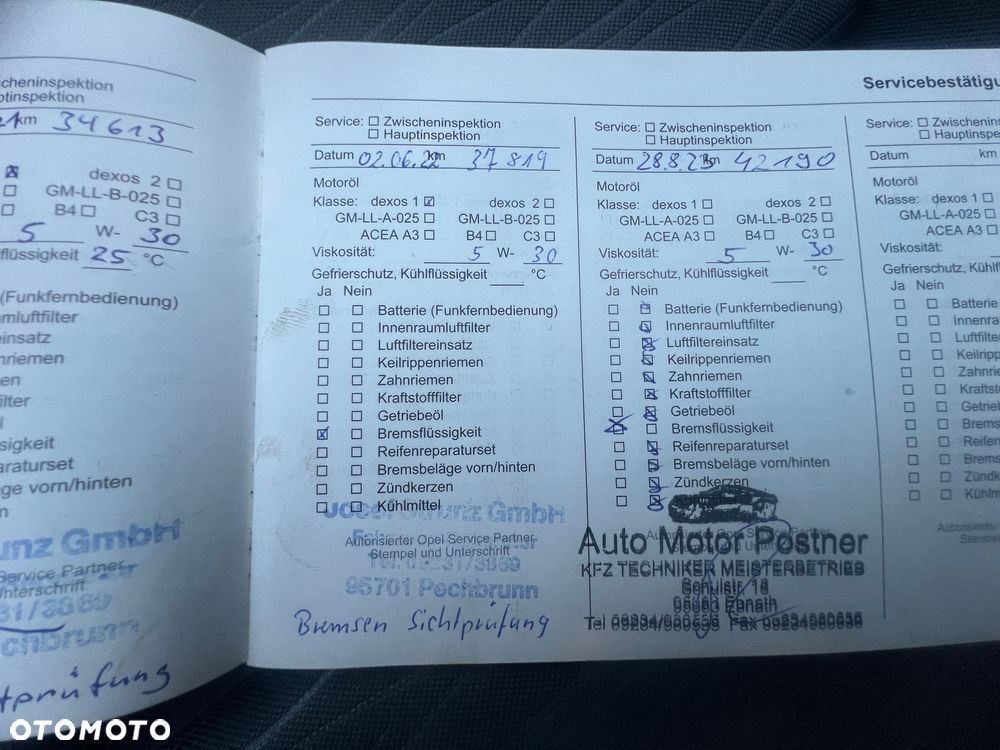 scheninspektion
ptinspektion
km 34613
dexos 2
GM-LL-B-025
B4 C3
5 W- 30
flüssigkeit 25 °C
(Funkfernbedienung)
mluftfilter
einsatz
nriemen
en
lter
l
sigkeit
araturset
ge vorn/hinten
n
unz GmbH
Service Partner
erschrift
31/3869
chbrunn
tprüfung
Servicebestätigu
Service: Zwischeninspektion
Hauptinspektion
Datum 02.06.22 km 37819
Motoröl
Klasse: dexos 1 dexos 2
GM-LL-A-025 GM-LL-B-025
ACEA A3 B4 C3
Viskosität: 5 W- 30
Gefrierschutz, Kühlflüssigkeit °C
Ja Nein
Batterie (Funkfernbedienung)
Innenraumluftfilter
Luftfiltereinsatz
Keilrippenriemen
Zahnriemen
Kraftstofffilter
Getriebeöl
Bremsflüssigkeit
Reifenreparaturset
Bremsbeläge vorn/hinten
Zündkerzen
Kühlmittel
GmbH
Autorisierter Opel Service Partner
Stempel und Unterschrift
95701 Pechbrunn
Bremsen Sichtprüfung
Service: Zwischeninspektion
Hauptinspektion
Datum 28.8.23 km 42190
Motoröl
Klasse: dexos 1 dexos 2
GM-LL-A-025 GM-LL-B-025
ACEA A3 B4 C3
Viskosität: 5 W- 30
Gefrierschutz, Kühlflüssigkeit °C
Ja Nein
Batterie (Funkfernbedienung)
Innenraumluftfilter
Luftfiltereinsatz
Keilrippenriemen
Zahnriemen
Kraftstofffilter
Getriebeöl
Bremsflüssigkeit
Reifenreparaturset
Bremsbeläge vorn/hinten
Zündkerzen
Auto Motor Postner
KFZ TECHNIKER MEISTERBETRIEB
Schulstr. 18
Ebnath
Tel Fax
Service: Zwischenin
Hauptinspe
Datum km
Motoröl
Klasse: dexos 1
GM-LL-A-025
ACEA A3
Viskosität:
Gefrierschutz, Kühlflüssig
Ja Nein
Batterie
Innenra
Luftfilte
Keilripp
Zahnri
Kraftst
Getrieb
Brems
Reifen
Brems
Zündk
Kühlm
Autorisier
Stempe
OTOMOTO